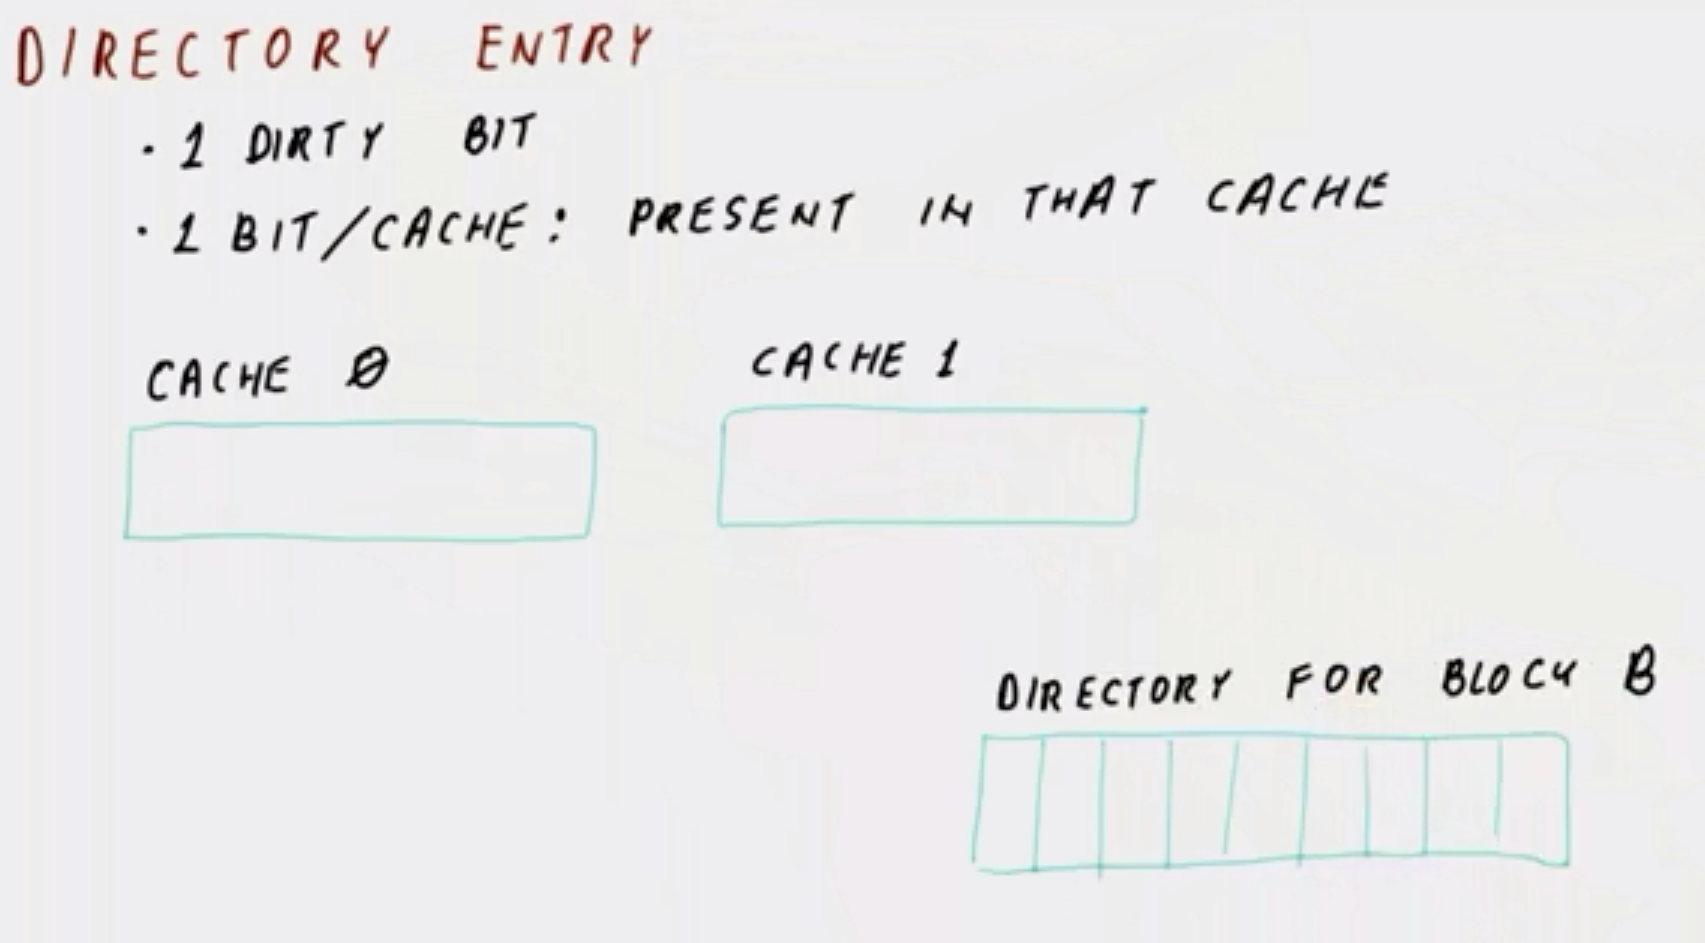 DIRECTORY ENTRY
· 1 DIRTY BIT
· 1 BIT/CACHE: PRESENT IN THAT CACHE
CACHE 0
CACHE 1
DIRECTORY FOR BLOCK B